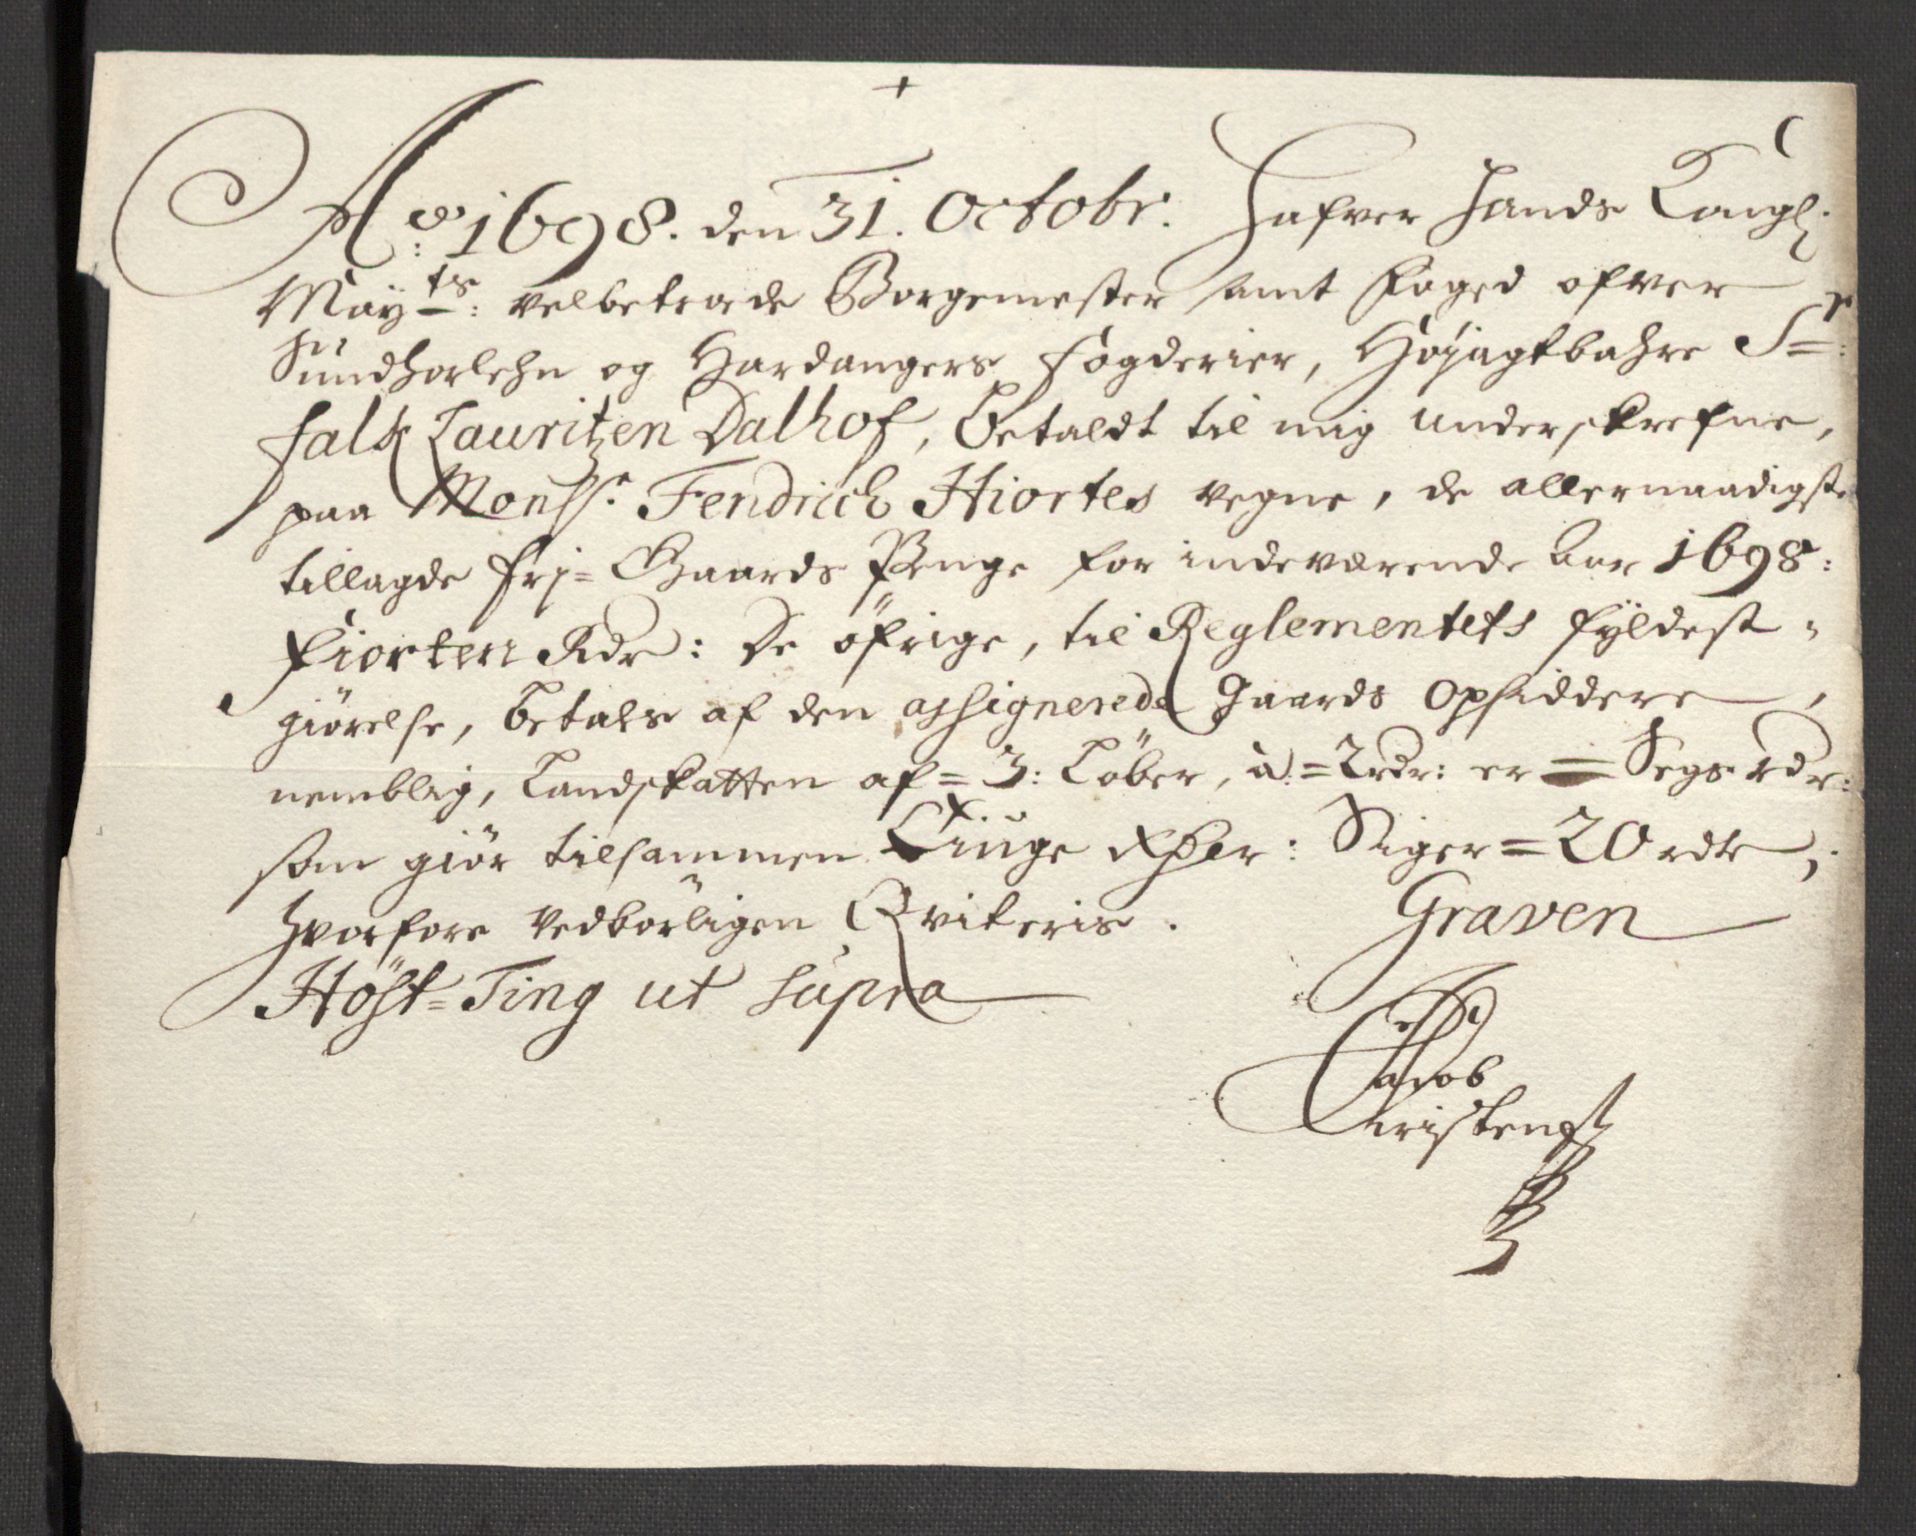 +
Ao: 1698. den 31. Octobr. Hafver Hands Kongl:
Mayts: velbetroede Borgemester samt Foged ofver
Sundhorlehn og Hardangers Fogderier, Höyagtbahre Sr:
Falk Lauritzen Dalhof, betaldt til mig underskrefne,
paa Monsr. Fendrich Hiortes vegne, de allernaadigste
tillagde frj= Gaards Penge for indeværende Aar 1698:
Fiorten Rdr: De öfrige, til Reglementets fyldest=
giörelse, betales af den assignerede Gaards Opsiddere,
nemblig, Landskatten af = 3: Löber, à = 2 rdr: er = Segs rdr:
som giör tilsammen Tiuge Rder: Siger = 20 rdr,
hvorfore vedbörligen Qviteris. Graven
Höst=Ting ut supra
Jacob
Christens